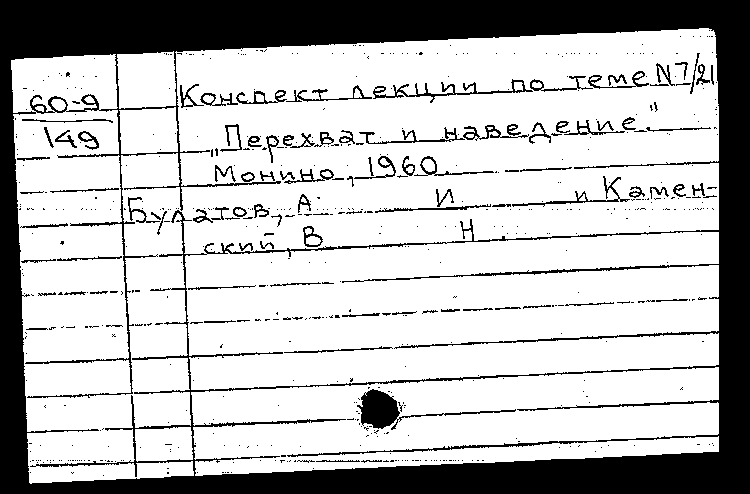 60-9
149
Конспект лекции по теме N7/21
„Перехват и наведение."
Монино, 1960.
Булатов, А И и Камен-
ский, В Н.